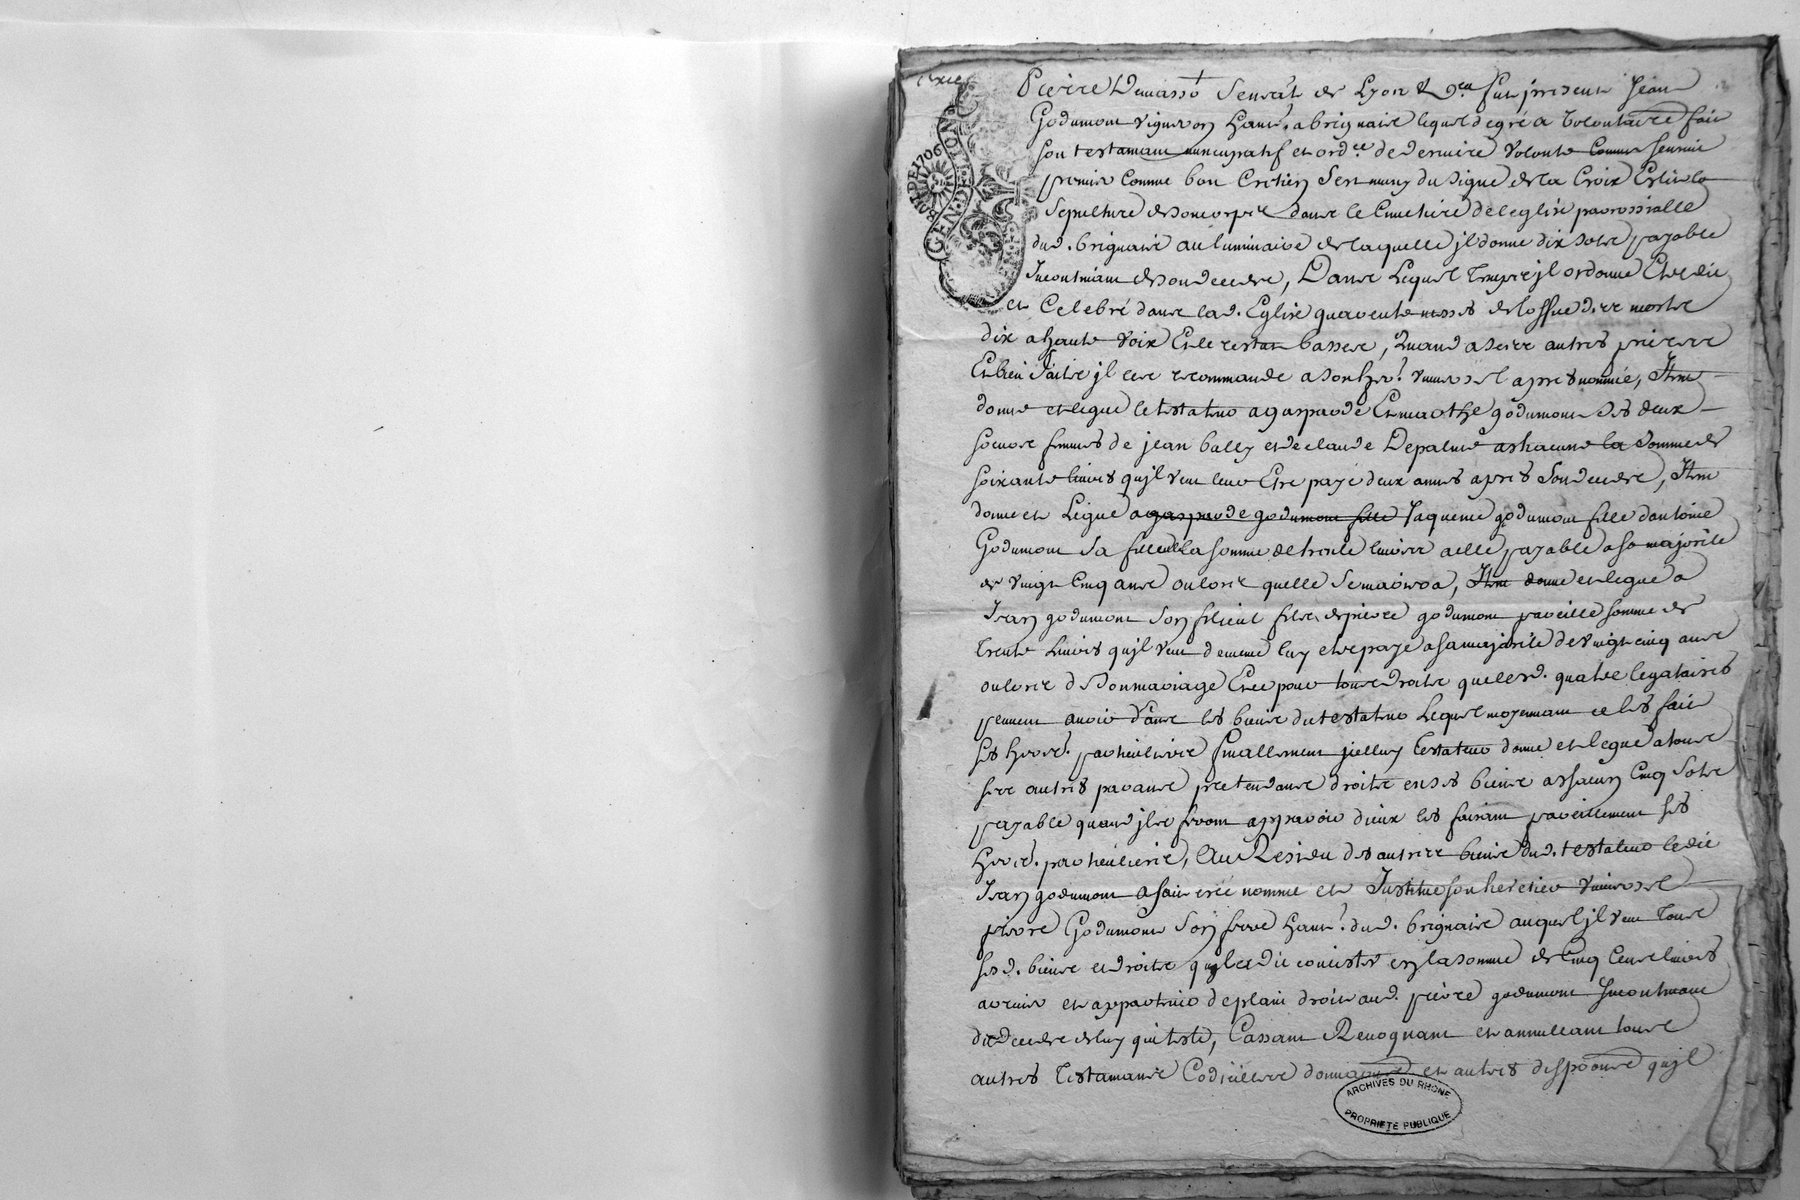 Pierre Demasso Senrat de Lyon & den fut present Jean
Godumont vigneron hant. a brignaire lequel de gré a volontaire fait
son testamant nuncupatif et ord.ce de derniere volonte comme sensuit
premier Comme bon Cretien sest muny du signe de la Croix Eslit la
sepulture de son corps dans le Cimetiere de leglise parrossialle
dud. brignaire au luminaire de laquelle jl donne dix sols payable
Incontinant de son deceds, Dans Lequel temps jl ordonne Etre dit
et Celebré dans lad. Eglise quarente messes de loffice des morts
dix a haute voix Et le restant basses, Quand a ses autres prieres
Et bien faits jl sen recommande a son her. universel apres nommé, Item
donne et legue le testateur a gasparde Et marthe godumont ses deux
soeurs femmes de jean bally et de claude Depalme a chacune la somme de
soixante livres qujl veut leur Etre payé deux annés apres son deceds, Item
donne et Legue a gasparde godumont fille Jaqueme godumont fille dantoine
Godumont sa filleule la somme de trente livres a elle payable a sa majorite
de vingt Cinq ans ou lors quelle se mariera, Item donne et legue a
Jean godumont son filieul fils de pierre godumont pareille somme de
trente Livres qujl veut de meme luy etre payé a sa majorité de vingt cinq ans
ou lors de son mariage Et ce pour tous droits que lesd. quatre legataires
peuvent avoir dans les biens du testateur Lequel moyennant ce les fait
ses herers. particuliers finallement jcelluy testateur donne et legue a tous
ses autres parans pretendans droits en ses biens a chacun Cinq sols
payable quand jls feront apparoir dieux les faisant pareillement ses
herers. particuliers, Au Residu des autres biens dud. testateur ledit
Jean godumont a fait créé nommé et Institue son heretier universel
pierre Godumont son frere hant. dud. brignaire auquel jl veut tous
sesd. biens et droits qujl a dit consister en la somme de Cinq Cens livres
avenir et appartenir de plain droit aud. pierre godumont Incontinant
du deceds de luy qui teste, Cassant Revoquant et annullant tous
autres Testamans Codicilles donnations et autres disposons qujl
GEN. DE. LYON
ARCHIVES DU RHONE
PROPRIETE PUBLIQUE